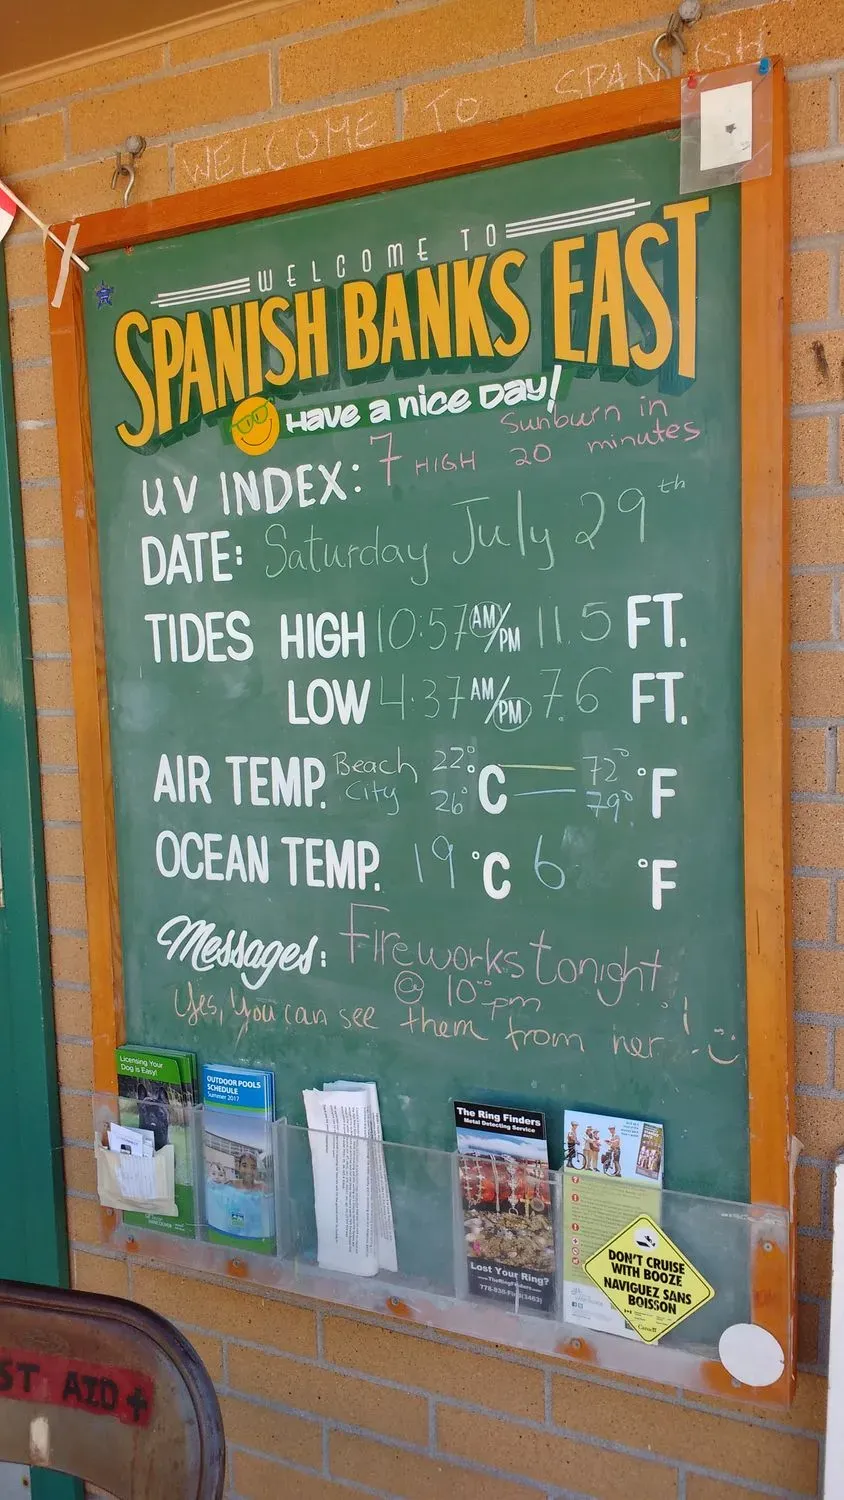 WELCOME TO SPANISH
WELCOME TO
SPANISH BANKS EAST
Have a nice Day!
UV INDEX: 7 HIGH Sunburn in 20 minutes
DATE: Saturday July 29th
TIDES HIGH 10:57 AM/PM 11.5 FT.
LOW 4:37 AM/PM 7.6 FT.
AIR TEMP. Beach 22° °C 72° °F
City 26° 79°
OCEAN TEMP. 19 °C 6 °F
Messages: Fireworks tonight
@ 10:00 pm !
Yes, You can see them from her
Licensing Your
Dog is Easy!
OUTDOOR POOLS
SCHEDULE
Summer 2017
The Ring Finders
Metal Detecting Service
Lost Your Ring?
www.TheRingFinders.com
DON'T CRUISE
WITH BOOZE
NAVIGUEZ SANS
BOISSON
Canada
ST AID +